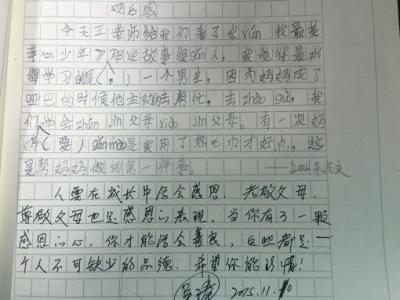 观后感
今天王老师给我们看了《xún 找最美
孝心少年》那边故事很gǎn人。我觉得最
得学习的是（ ）一个男生，因为妈妈成了
的时候他主动去帮忙。去zhào gù，我
们学会zūn jìn父母 xiào jìn父母。有一次妈
妈（要）gǎn mào是我用了热 才好点。这
是帮妈妈做的第一件事。
人要在成长中学会感恩，孝敬父母，
尊敬父母也是感恩的表现，当你有了一颗
感恩的心，你才能学会善良，这些都是一
个人不可缺少的品德，希望你能珍惜！
2015.11.10